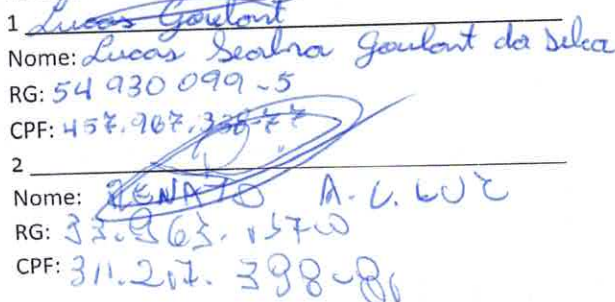 1 Lucas Goulart
Nome: Lucas Seabra Goulart da Silva
RG: 54 930 099-5
CPF: 457.967.338-77
2
Nome: RENATO A. C.
RG: 33.963.
CPF: 311.217.398-81